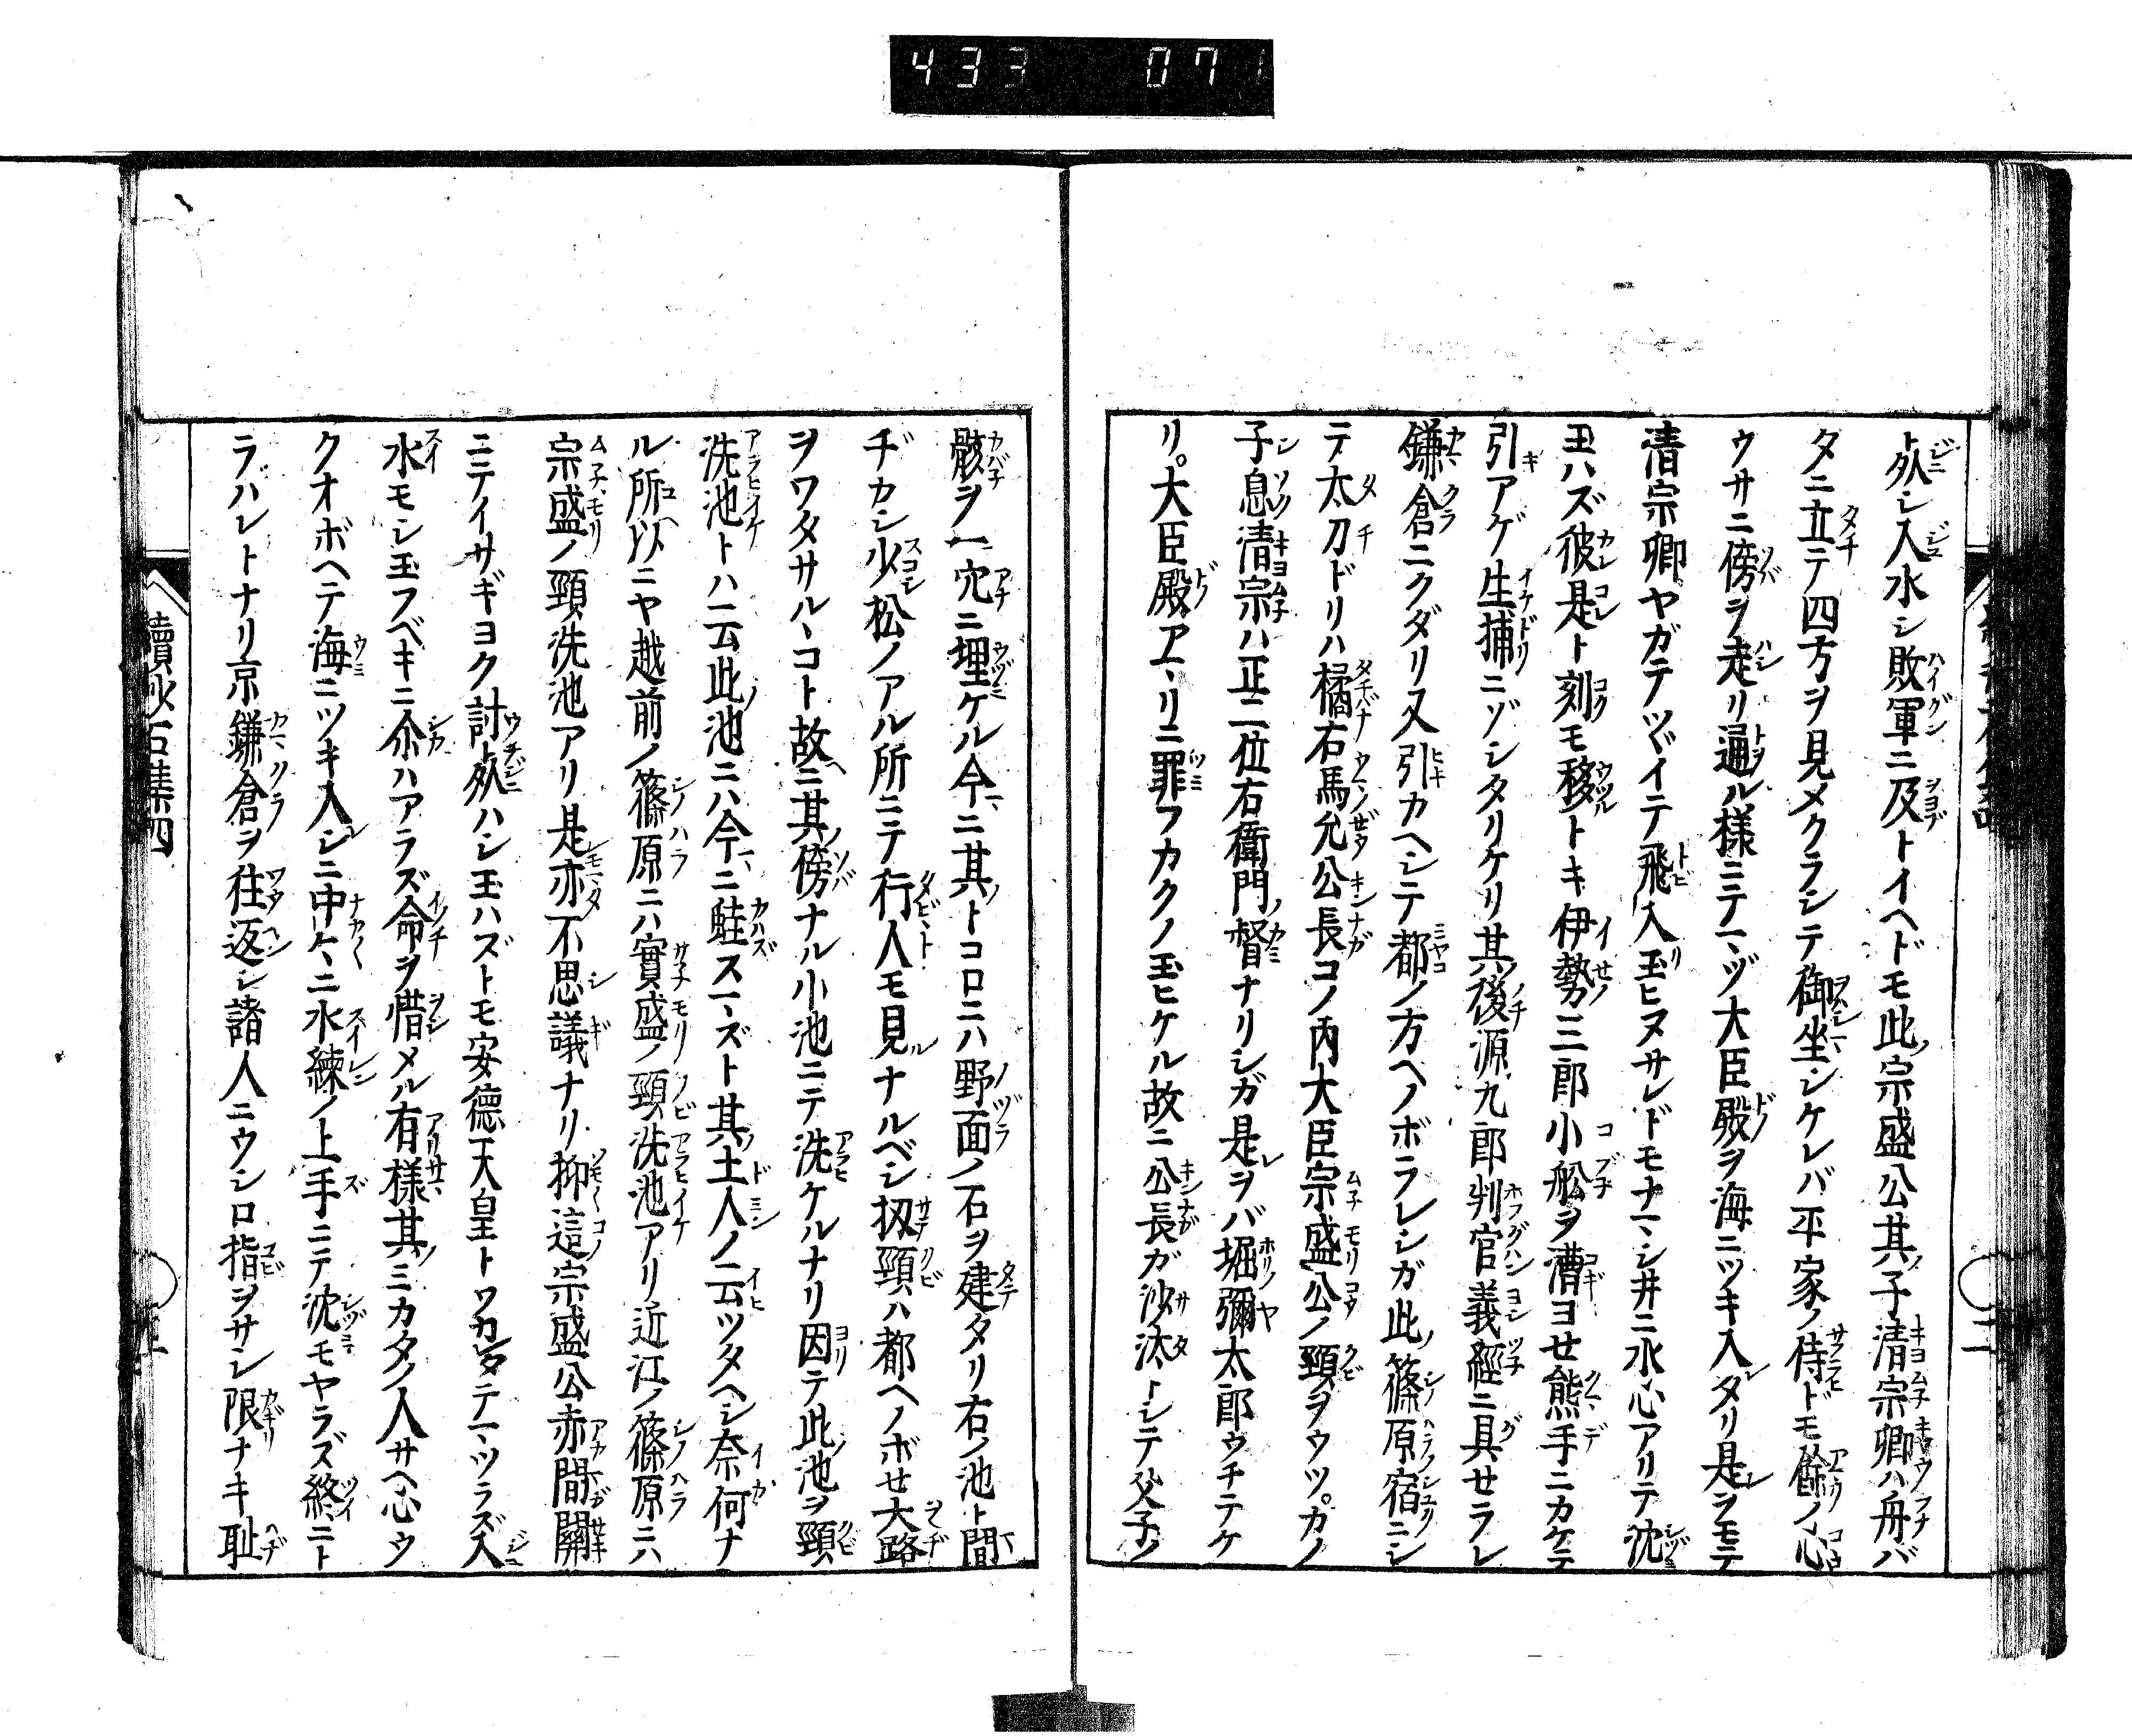 433 071
ト死シ入水シ敗軍ニ及トイヘドモ此ノ宗盛公其ノ子清宗卿ハ舟バ
タニ立テ四方ヲ見メクラシテ御坐シケレバ平家ノ侍ドモ餘ノ心
ウサニ傍ヲ走リ通ル様ニテマヅ大臣殿ヲ海ニツキ入レタリ是レヲモテ
清宗卿ヤガテツヾイテ飛入リ玉ヒヌサレドモナマシ井ニ水心アリテ沈
玉ハズ彼是ト刻モ移トキ伊勢ノ三郎小舩ヲ漕ヨせ熊手ニカケテ
引アゲ生捕ニゾシタリケリ其ノ後源九郎判官義經ニ具せラレ
鎌倉ニクダリ又引カヘシテ都ノ方ヘノボラレシガ此ノ篠原宿ニシ
テ太刀ドリハ橘右馬允公長コノ内大臣宗盛公ノ頸ヲウツ。カノ
子息清宗ハ正二位右衛門ノ督ナリシガ是レヲバ堀彌太郎ウチテケ
リ。大臣殿アマリニ罪フカクノ玉ヒケル故ニ公長ガ沙汰トシテ父子ノ
骸ヲ一穴ニ埋ケル今マニ其ノトコロニハ野面ノ石ヲ建タリ右ノ池ト間
ヂカシ少松ノアル所ニテ行人モ見ルナルベシ扨頸ハ都ヘノボせ大路
ヲワタサルヽコト故ヘニ其ノ傍ナル小池ニテ洗ケルナリ因テ此ノ池ヲ頸
洗池トハ云此ノ池ニハ今マニ蛙スマズト其ノ土人ノ云ツタヘシ奈何ナ
ル所以ニヤ越前ノ篠原ニハ實盛ノ頸洗池アリ近江ノ篠原ニハ
宗盛ノ頸洗池アリ是レモ亦不思議ナリ抑這宗盛公赤間關
ニテイサギヨク討死ハシ玉ハズトモ安德天皇トワカレタテマツラズ入
水モシ玉フベキニ尒ハアラズ命ヲ惜メル有様其ノミカタノ人サヘ心ウ
クオボヘテ海ニツキ入レシニ中〳〵ニ水練ノ上手ニテ沈モヤラズ終ニト
ラハレトナリ京鎌倉ヲ往返シ諸人ニウシロ指ヲサシ限ナキ耻
續砂石集四